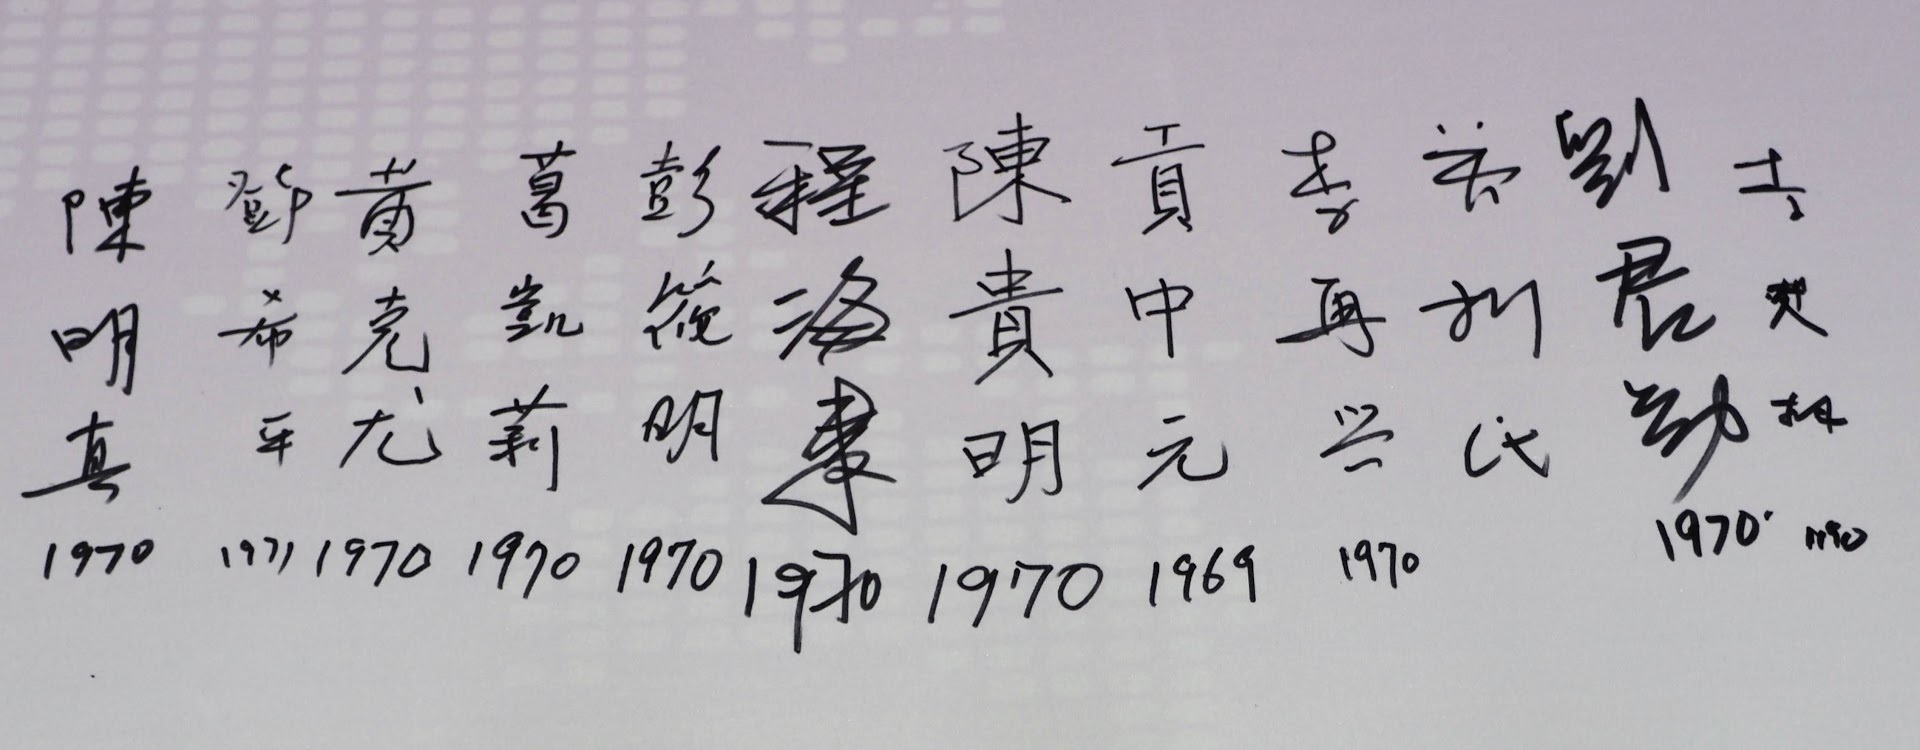 陳明真
1970
鄧希平
1971
黃克尤
1970
葛凱莉
1970
彭筱明
1970
程海東
1970
陳貴明
1970
貢中元
1969
李再兴
1970
劉君勤
1970